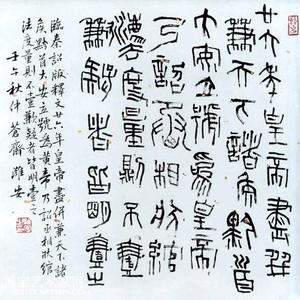 廿六年皇帝盡并
兼天下諸侯黔首
大安立號爲皇帝
乃詔丞相狀綰
灋度量則不壹
歉疑者皆明壹之
臨秦詔版釋文廿六年皇帝盡併兼天下諸
侯黔首大安立號爲黄帝乃詔丞相狀綰
法度量則不壹歉疑者皆明壹之
壬午秋仲蒼齋